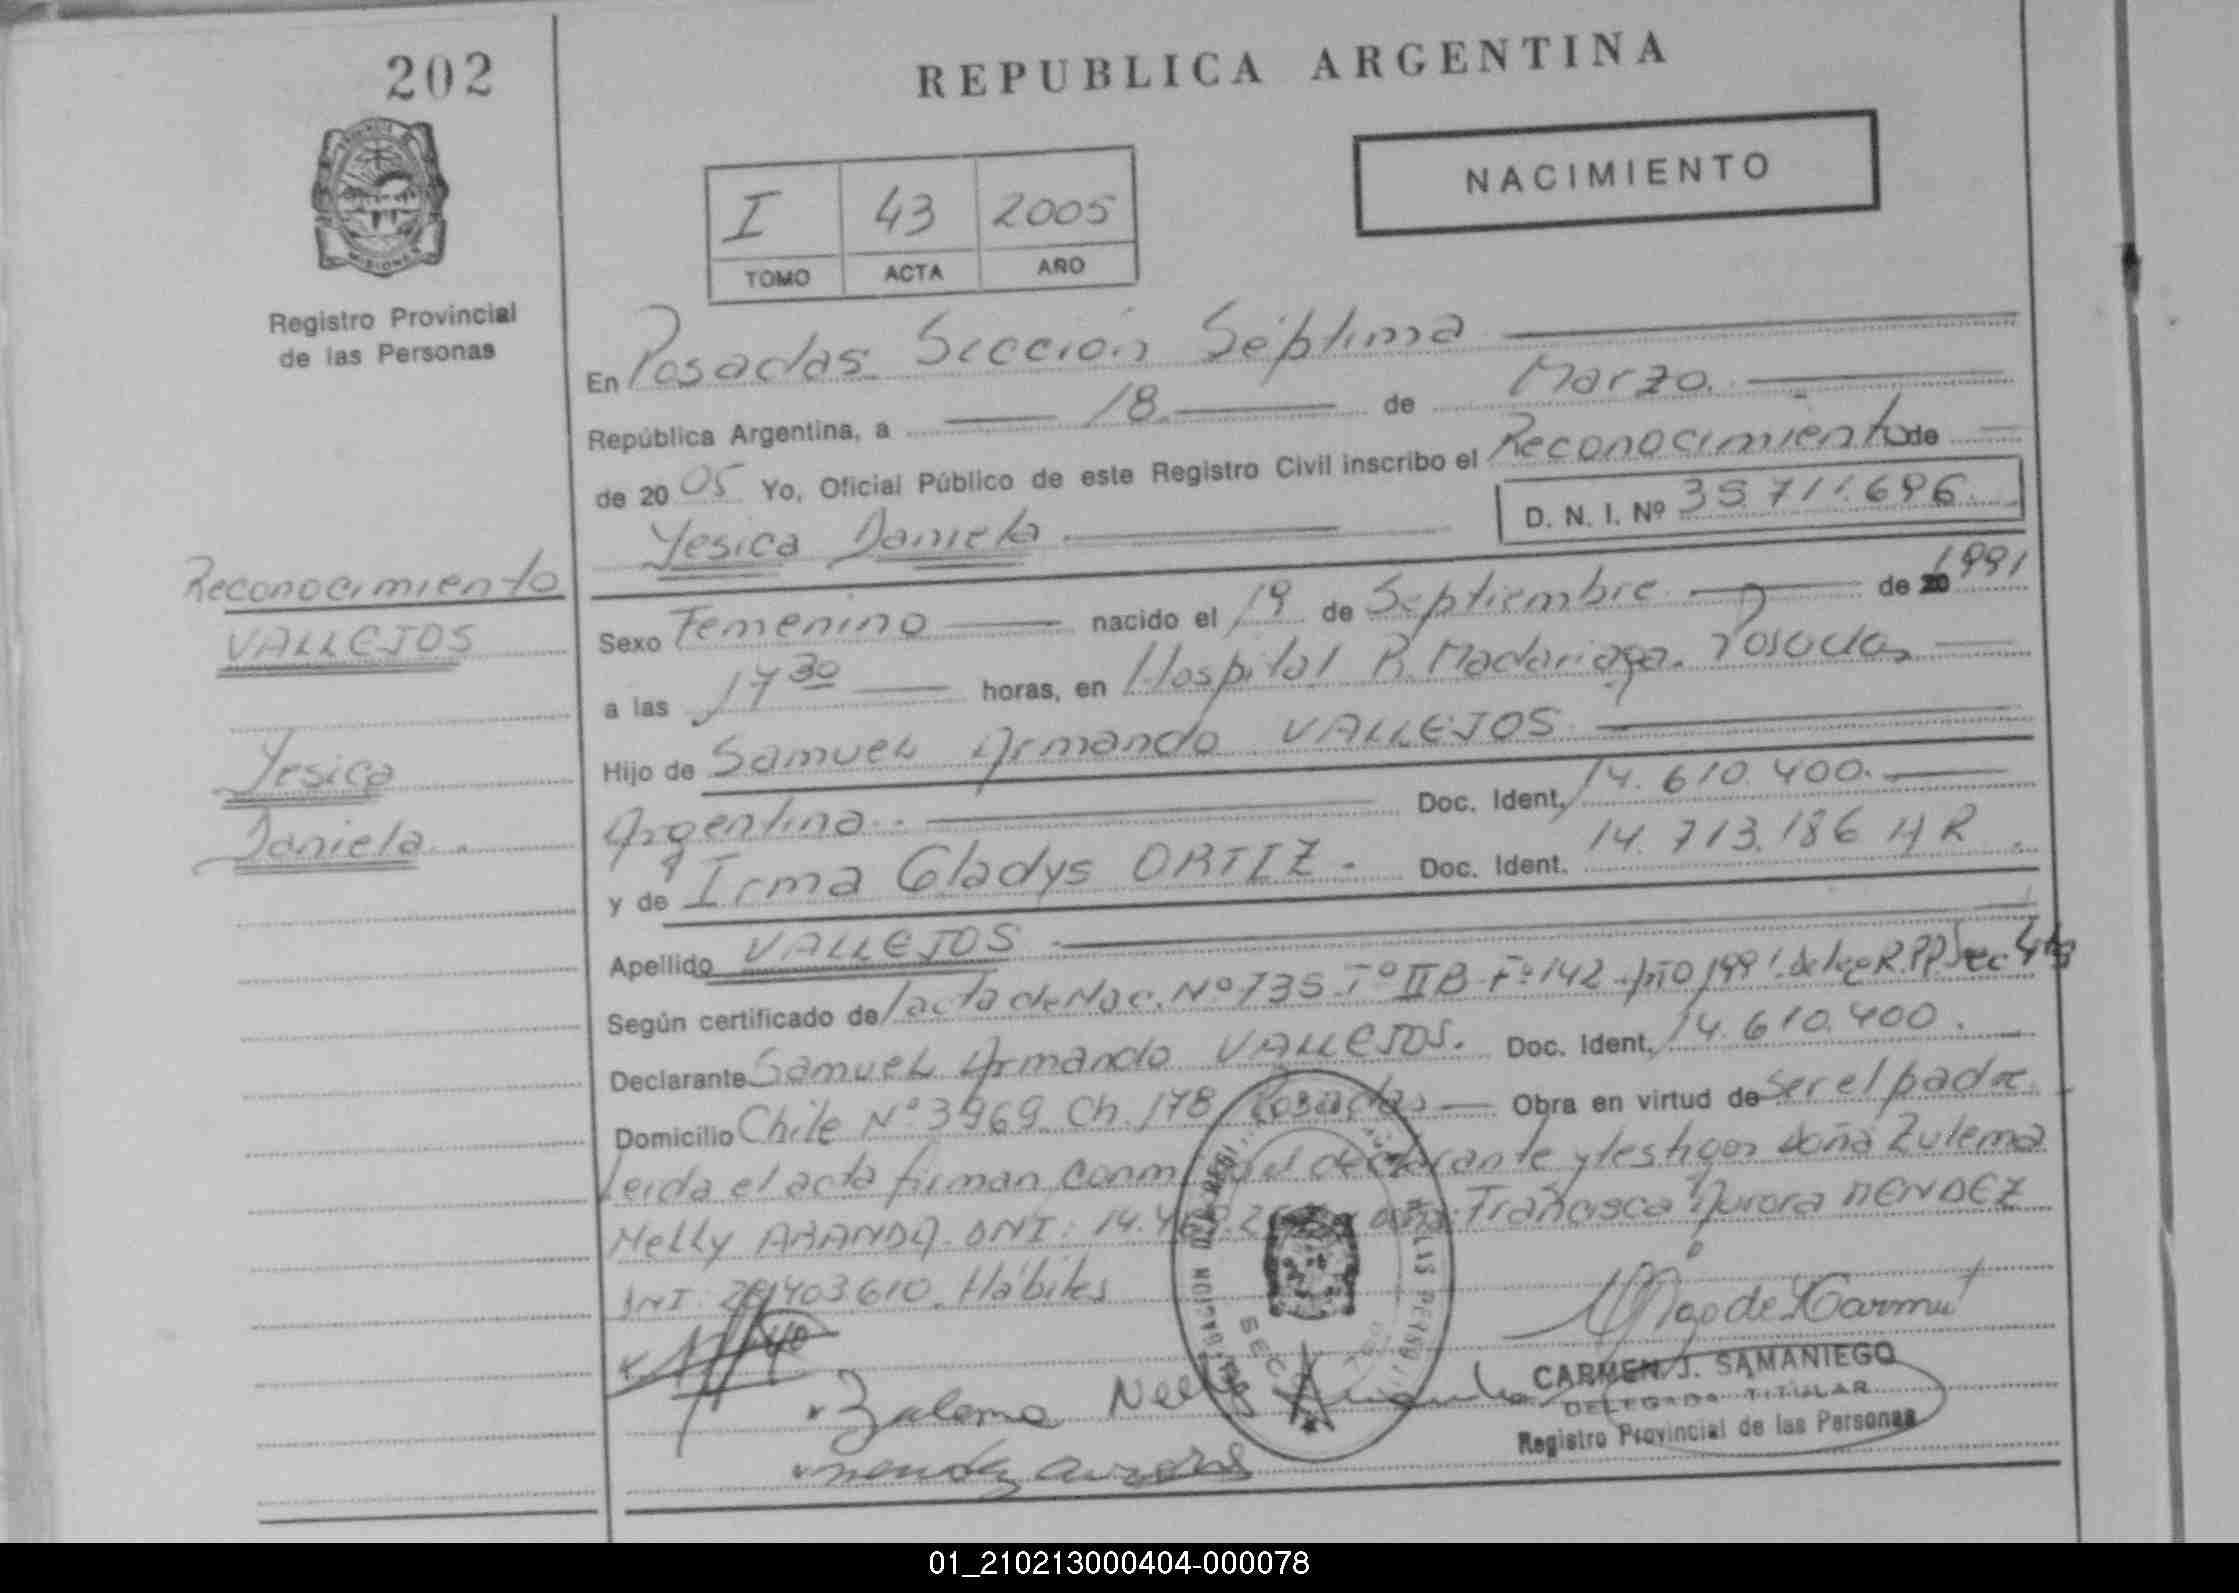 202
REPUBLICA ARGENTINA
NACIMIENTO
I 43 2005
TOMO ACTA AÑO
Registro Provincial
de las Personas
En Posadas Sección Séptima
República Argentina, a 18 de Marzo
de 2005 Yo, Oficial Público de este Registro Civil inscribo el Reconocimiento de
Yesica Daniela D. N. I. Nº 35.711.696
Reconocimiento
VALLEJOS
Yesica
Daniela
Sexo Femenino nacido el 19 de Septiembre de 1991
a las 17 30 horas, en Hospital R. Madariaga. Posadas
Hijo de Samuel Armando VALLEJOS
Argentina. Doc. Ident. 14.610.400.
y de Irma Gladys ORTIZ. Doc. Ident. 14.713.186
Apellido VALLEJOS
Según certificado de acta de Nac. Nº 735 Tº II B Fº 142 1991 Sec 4ta
Declarante Samuel Armando VALLEJOS. Doc. Ident. 14.610.400.
Domicilio Chile Nº 3969 Ch. 178 Posadas Obra en virtud de ser el padre
Leída el acta firman el declarante y testigos doña Zulema
Nelly ARANDA DNI: doña Francisca Aurora MENDEZ
DNI Hábiles
Zulema Nelly
CARMEN J. SAMANIEGO
DELEGADA TITULAR
Registro Provincial de las Personas
01_210213000404-000078